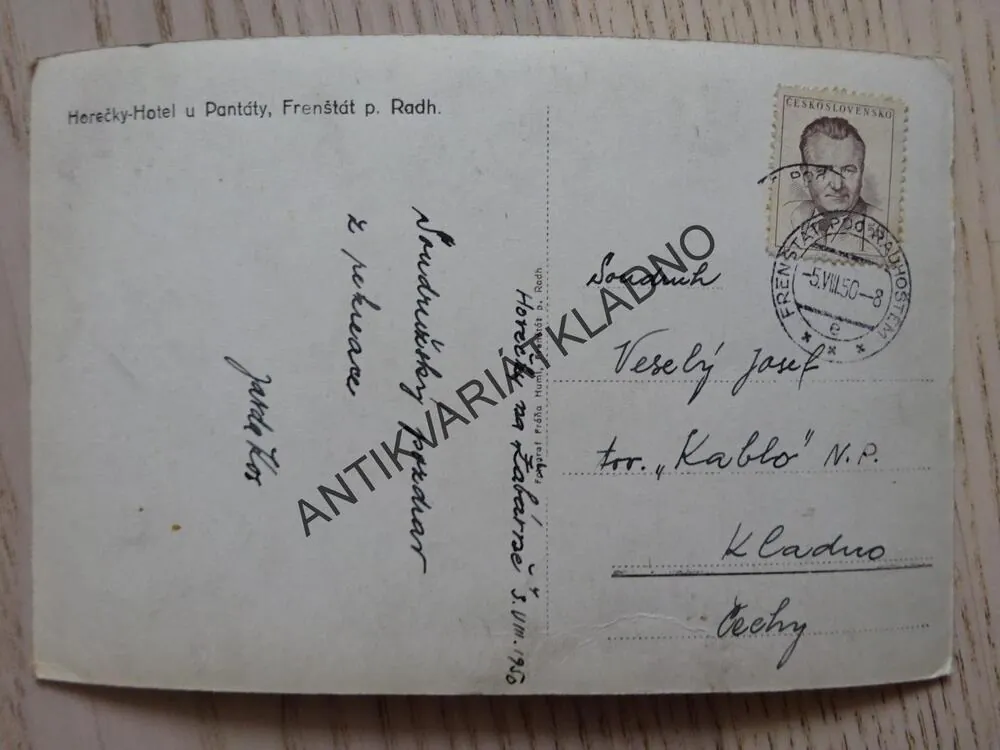 Horečky-Hotel u Pantáty, Frenštát p. Radh.
ČESKOSLOVENSKO
FRENŠTÁT POD RADHOŠTĚM
-5.VIII.50-8
e
Soudružský pozdrav
z rekreace
Jarda Kos
Horečky na 5.VIII.1950
Fotograf Fráňa Huml, Frenštát p. Radh
Soudruh
Veselý Josef
tov. „Kablo" N.P.
Kladno
Čechy
ANTIKVARIÁT KLADNO